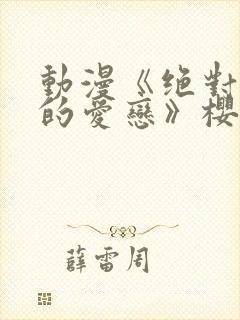 動漫《绝對
的愛戀》櫻
薛雷周